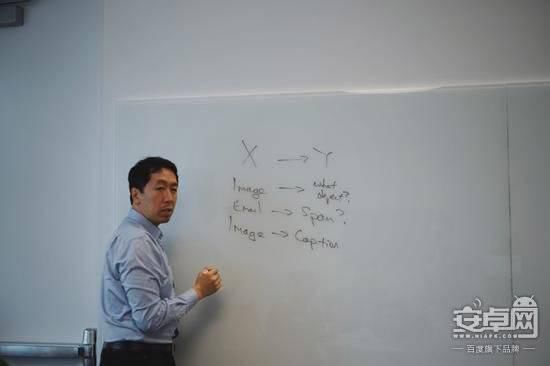 X → Y
Image → what object?
Email → Spam?
Image → Caption
安卓网
WWW.HIAPK.COM
百度旗下品牌